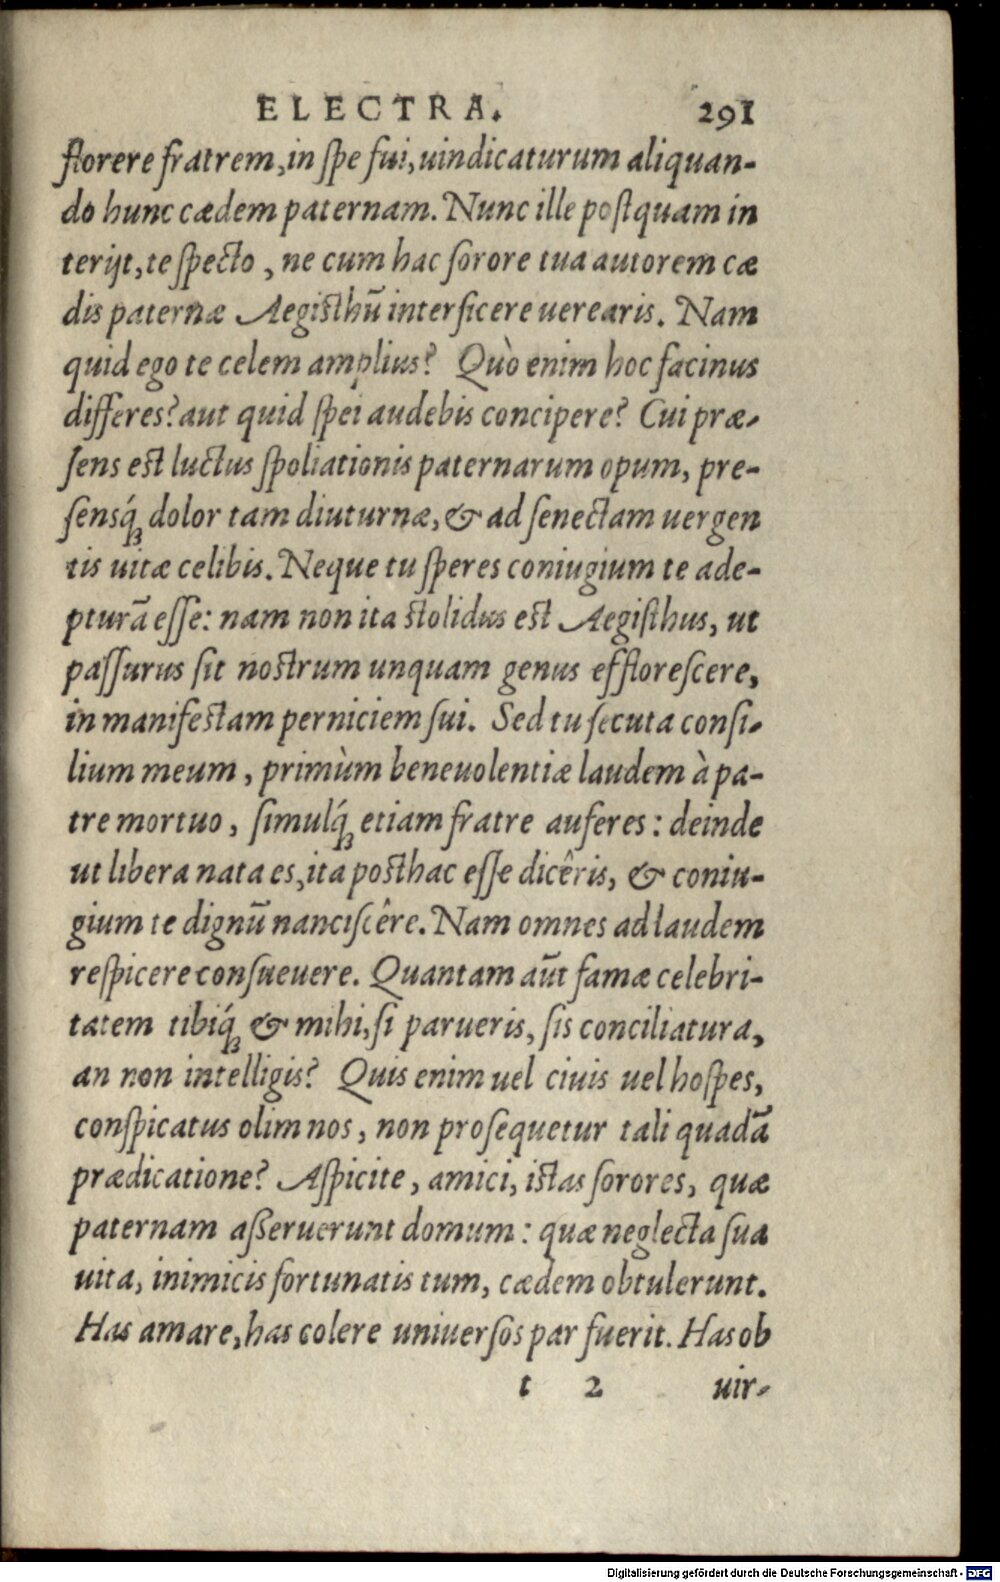 ELECTRA. 291
florere fratrem, in ſpe fui, uindicaturum aliquan-
do hunc cædem paternam. Nunc ille poſtquam in
terijt, te ſpecto, ne cum hac ſorore tua autorem cæ
dis paternæ Aegiſthũ interficere uerearis. Nam
quid ego te celem amplius? Quò enim hoc facinus
differes? aut quid ſpei audebis concipere? Cui præ-
ſens eſt luctus ſpoliationis paternarum opum, pre-
ſensq́ꝫ dolor tam diuturnæ, & ad ſenectam uergen
tis uitæ celibis. Neque tu ſperes coniugium te ade-
pturã eſſe: nam non ita ſtolidus eſt Aegiſthus, ut
paſſurus ſit noſtrum unquam genus effloreſcere,
in manifeſtam perniciem ſui. Sed tu ſecuta conſi-
lium meum, primùm beneuolentiæ laudem à pa-
tre mortuo, ſimulq́ꝫ etiam fratre auferes: deinde
ut libera nata es, ita poſthac eſſe dicêris, & coniu-
gium te dignũ nanciſcêre. Nam omnes ad laudem
reſpicere conſueuere. Quantam aũt famæ celebri-
tatem tibiq́ꝫ & mihi, ſi parueris, ſis conciliatura,
an non intelligis? Quis enim uel ciuis uel hoſpes,
conſpicatus olim nos, non proſequetur tali quadã
prædicatione? Aſpicite, amici, iſtas ſorores, quæ
paternam aſſeruerunt domum: quæ neglecta ſua
uita, inimicis fortunatis tum, cædem obtulerunt.
Has amare, has colere uniuerſos par fuerit. Has ob
t 2 uir-
Digitalisierung gefördert durch die Deutsche Forschungsgemeinschaft - DFG